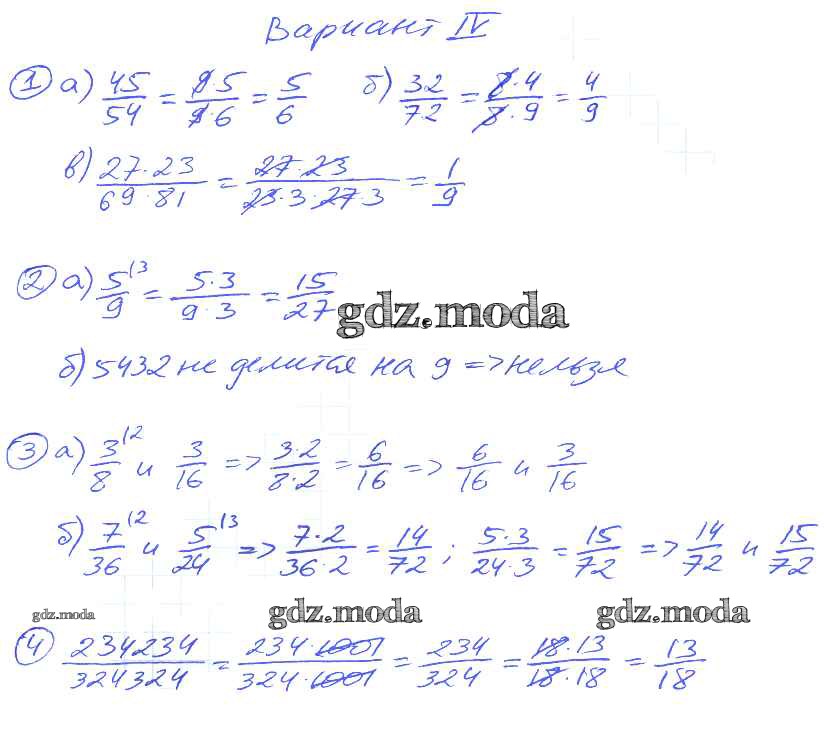 Вариант IV
① а) 45/54 = 9·5/9·6 = 5/6 б) 32/72 = 8·4/8·9 = 4/9
в) 27·23/69·81 = 27·23/23·3·27·3 = 1/9
② а) 5/9 \3 = 5·3/9·3 = 15/27
gdz.moda
б) 5432 не делится на 9 => нельзя
③ а) 3/8 \2 и 3/16 => 3·2/8·2 = 6/16 => 6/16 и 3/16
б) 7/36 \2 и 5/24 \3 => 7·2/36·2 = 14/72 ; 5·3/24·3 = 15/72 => 14/72 и 15/72
gdz.moda gdz.moda gdz.moda
④ 234234/324324 = 234·1001/324·1001 = 234/324 = 18·13/18·18 = 13/18